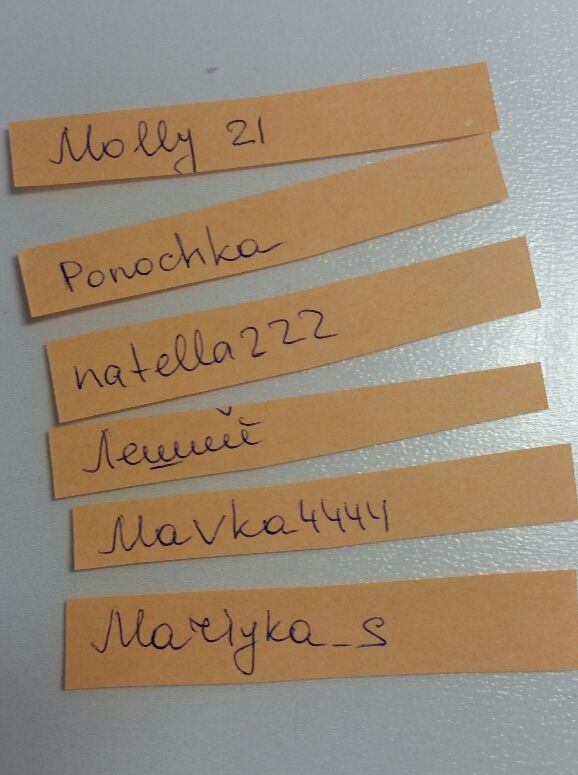 Molly 21
Ponochka
natella222
Леший
Mavka4444
_s